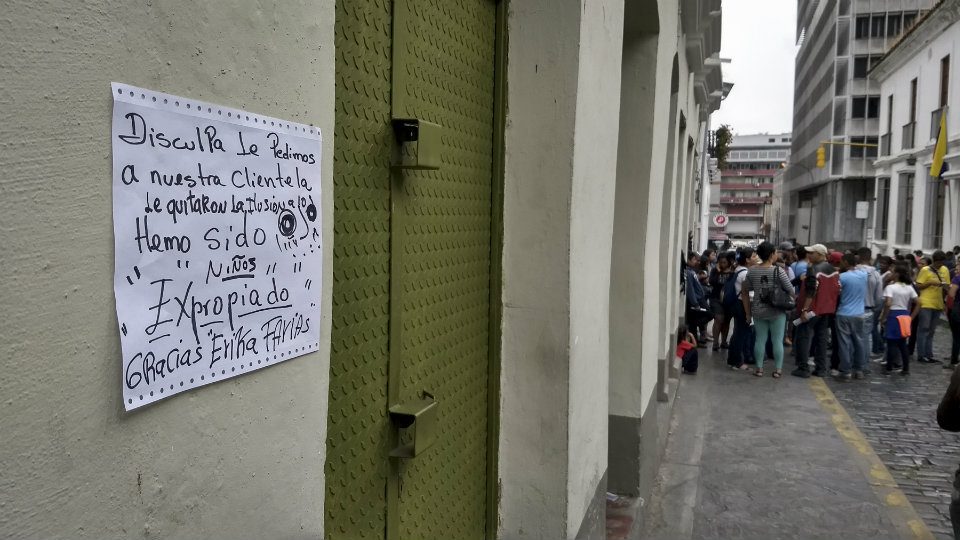 Disculpa Le Pedimos
a nuestra Clientela
Le quitaron La Ilusion a los
Hemo sido
" " NiÑos " "
" Expropiado "
GRacias "Erika FARIAS